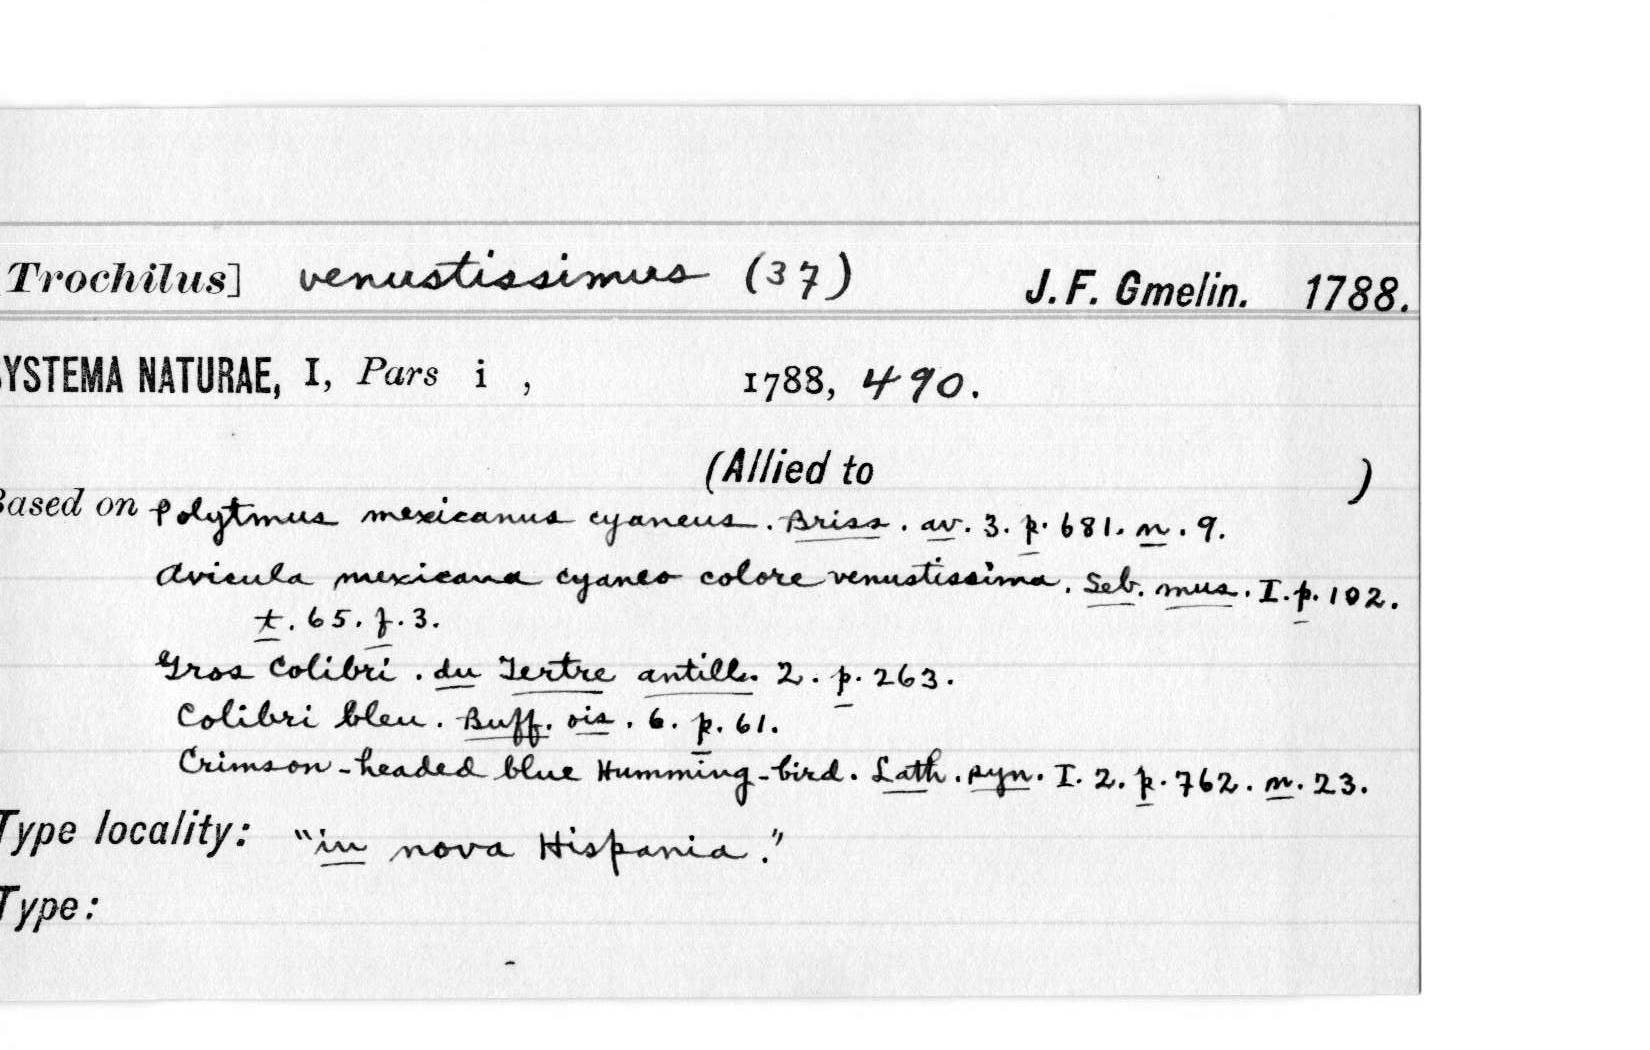 Trochilus] venustissimus (37) J. F. Gmelin. 1788.
YSTEMA NATURAE, I, Pars i , 1788, 490.
(Allied to )
Based on Polytmus mexicanus cyaneus. Briss. av. 3. p. 681. n. 9.
Avicula mexicana cyaneo colore venustissima. Seb. mus. I. p. 102.
t. 65. f. 3.
Gros Colibri. du Tertre antill. 2. p. 263.
Colibri bleu. Buff. ois. 6. p. 61.
Crimson-headed blue Humming-bird. Lath. syn. I. 2. p. 762. n. 23.
Type locality: "in nova Hispania."
Type: